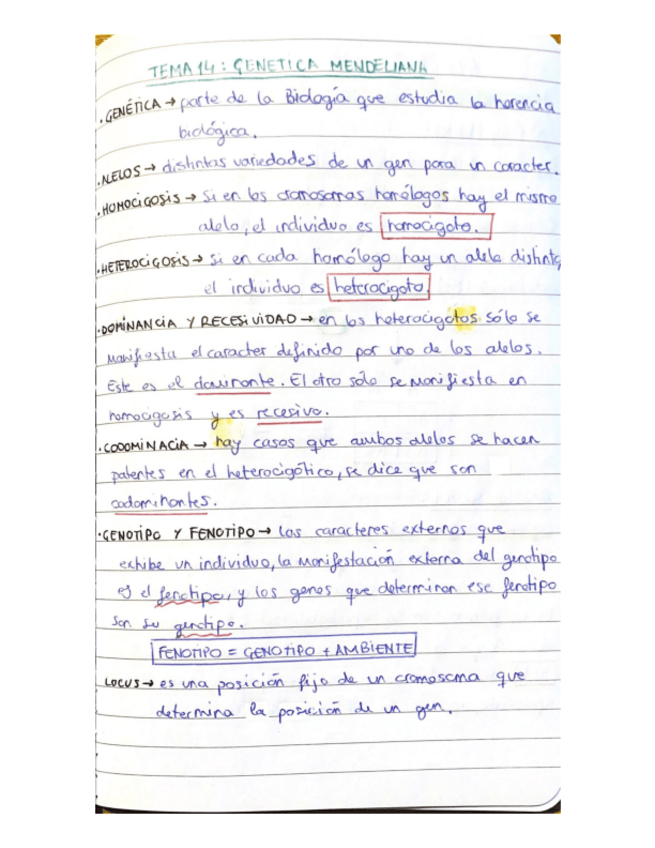 TEMA 14: GENETICA MENDELIANA
• GENÉTICA → parte de la Biología que estudia la herencia
biológica.
• ALELOS → distintas variedades de un gen para un caracter.
• HOMOCIGOSIS → Si en los cromosomas homólogos hay el mismo
alelo, el individuo es homocigoto.
• HETEROCIGOSIS → Si en cada homólogo hay un alelo distinto,
el individuo es heterocigoto.
• DOMINANCIA Y RECESIVIDAD → en los heterocigotos sólo se
manifiesta el caracter definido por uno de los alelos.
Este es el dominante. El otro sólo se manifiesta en
homocigosis y es recesivo.
• CODOMINACIA → hay casos que ambos alelos se hacen
patentes en el heterocigótico, se dice que son
codominantes.
• GENOTIPO Y FENOTIPO → Los caracteres externos que
exhibe un individuo, la manifestación externa del genotipo
es el fenotipo, y los genes que determinan ese fenotipo
son su genotipo.
FENOTIPO = GENOTIPO + AMBIENTE
• LOCUS → es una posición fija de un cromosoma que
determina la posición de un gen.